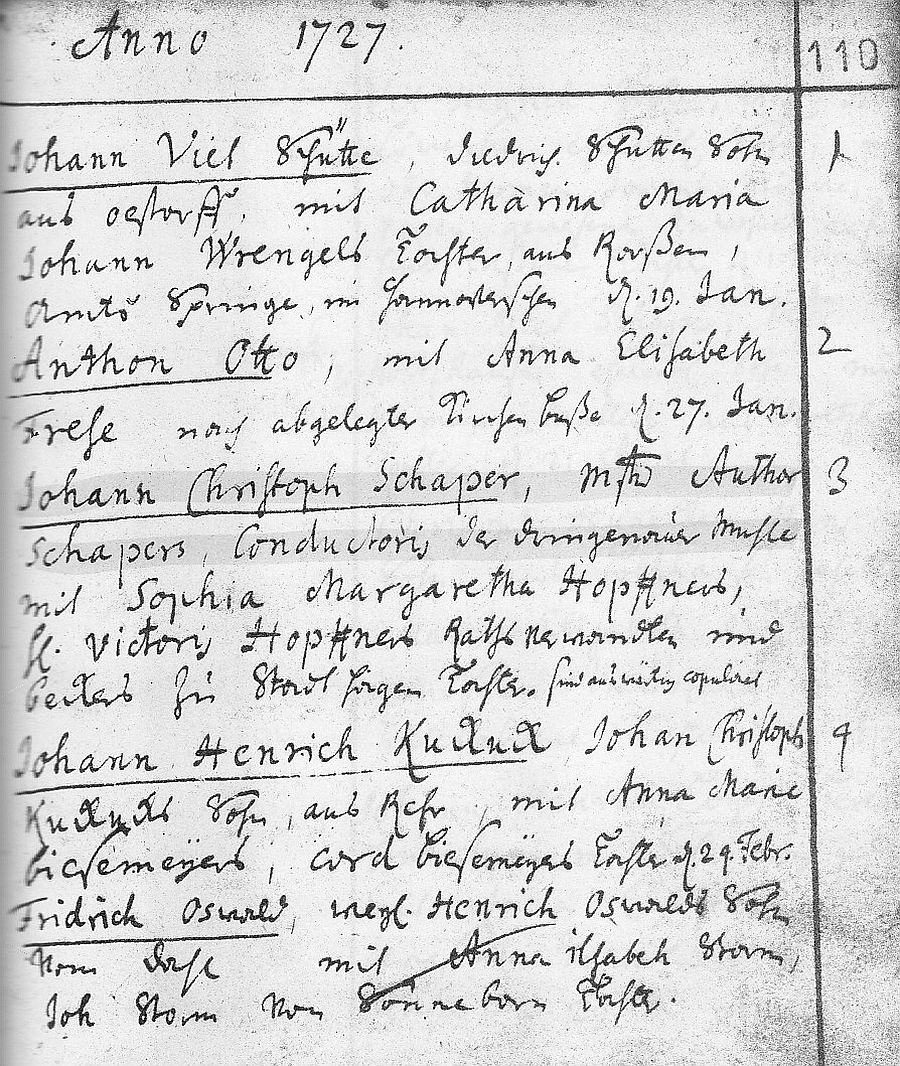 Anno 1727.
110
Johann Viel Schütte, Diedrich Schütten Sohn 1
aus oestorff. mit Catharina Maria
Johann Wrengels Tochter, aus
Amts Springe, im Hannoverschen d. 19. Jan.
Anthon Otto, mit Anna Elisabeth 2
Frese nach abgelegter Kirchen buße d. 27. Jan.
Johann Christoph Schaper, Author 3
Schapers, Conductoris der Mühle
mit Sophia Margaretha Höpffners,
sl. Victoris Höpffners Rahtsverwandten und
beckers zu Stadthagen Tochter. sind auswärtig copuliret
Johann Henrich Kuckuck Johan Christoph 4
Kuckucks Sohn, aus, mit Anna Marie
biesemeÿers, cord biesemeÿers Tochter d. 24. Febr.
Fridrich Oswald, weyl. Henrich Oswalds Sohn
vom mit Anna ilsabeh Storm,
Joh Storm von Sonneborn Tochter.